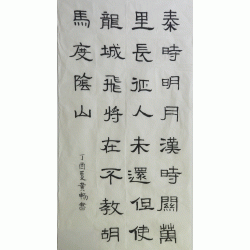 秦時明月漢時關萬
里長征人未還但使
龍城飛將在不教胡
馬度陰山
丁酉夏黃暢書